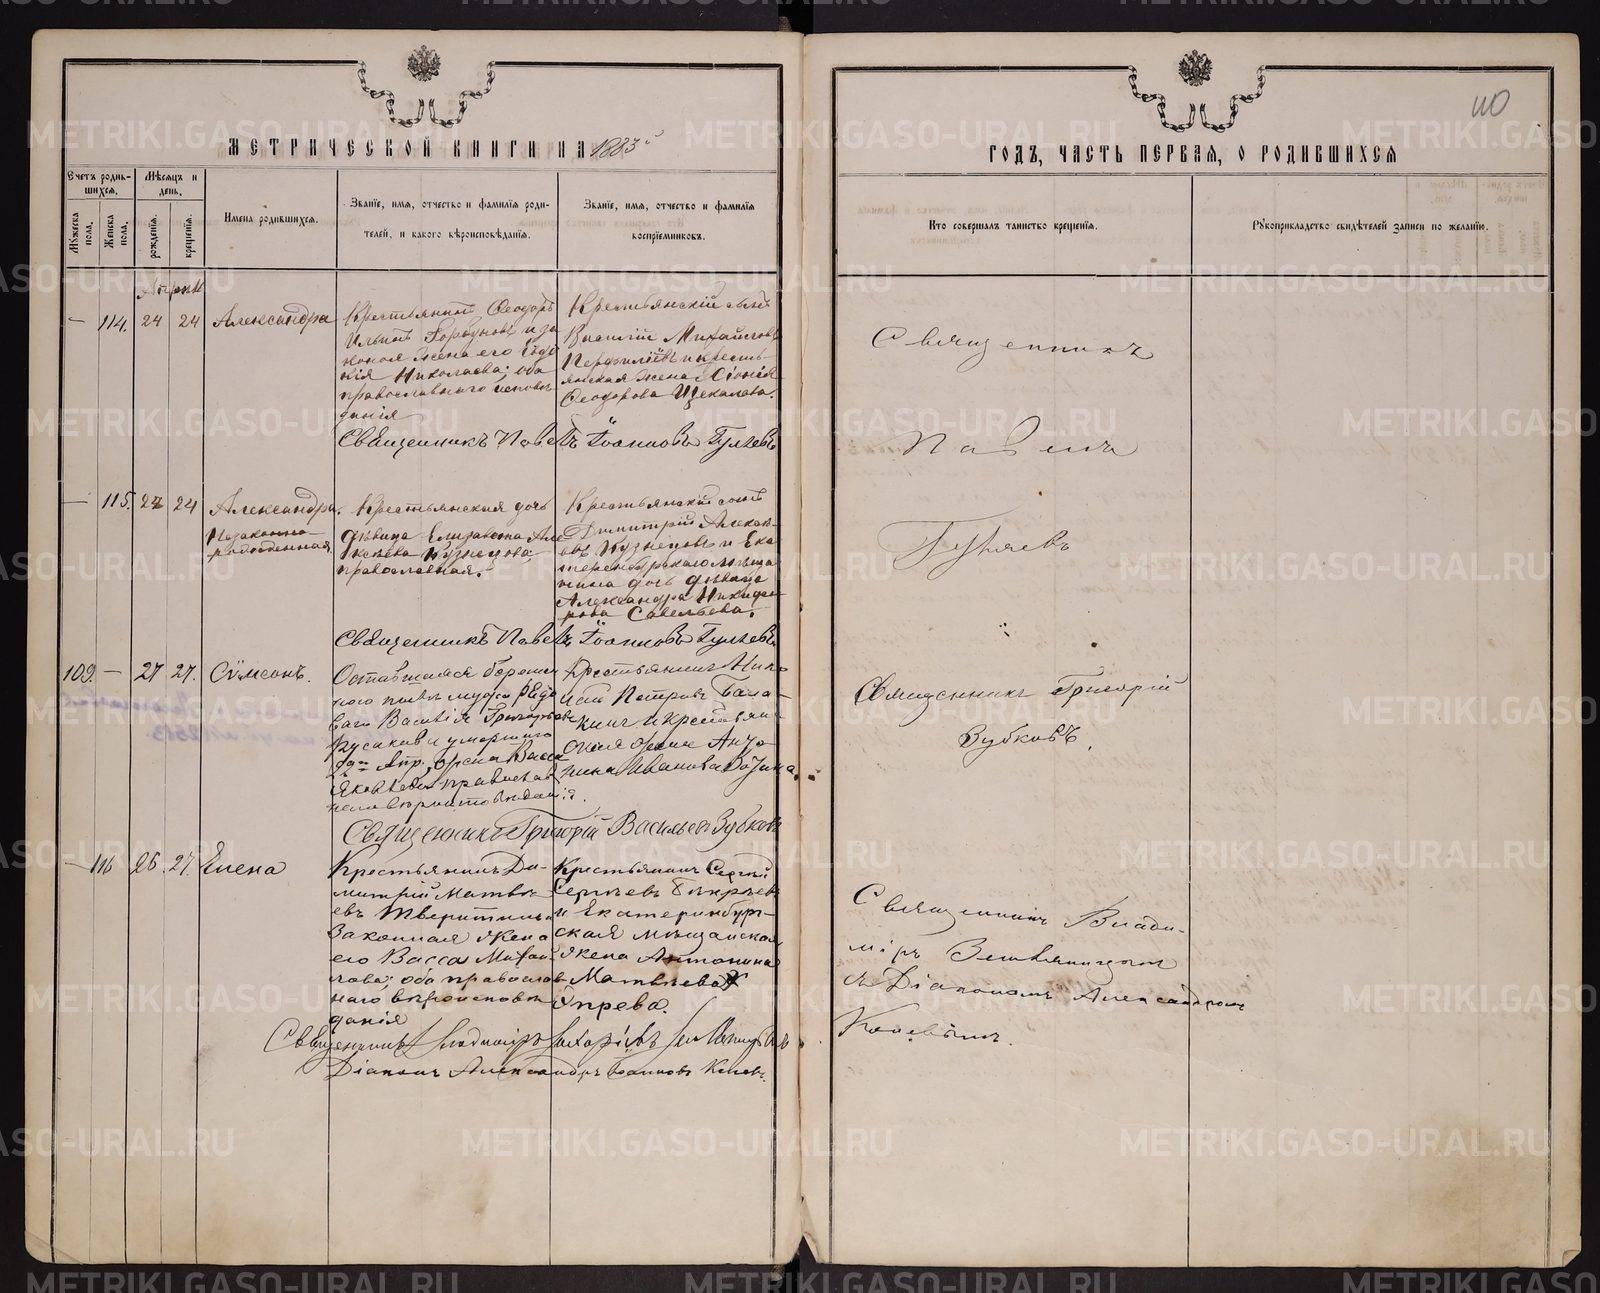 МЕТРИЧЕСКОЙ КНИГИ НА 1883й
ГОДЪ, ЧАСТЬ ПЕРВАЯ, О РОДИВШИХСЯ
110
Счетъ родив-
шихся.
Мѣсяцъ и
день.
Мужеска
пола.
Женска
пола.
рождения.
крещенія.
Имена родившихся.
Званіе, имя, отчество и фамилія роди-
телей, и какого вѣроисповѣданія.
Званіе, имя, отчество и фамилія
воспріемниковъ.
Кто совершалъ таинство крещенія.
Рукоприкладство свидѣтелей записи по желанію.
Апрѣль
— 114. 24 24 Александра
Крестьянинъ Ѳеодоръ
Ильинъ Горбуновъ и за
конная жена его Евдо
кія Николаева; оба
православнаго исповѣ
данія
Крестьянскій сынъ
Василій Михайловъ
Перфильевъ и кресть-
янская жена
Ѳеодорова Щекалова.
Священникъ Павелъ Іоанновъ Гуляевъ
Священникъ
Павелъ
Гуляевъ
— 115. 24 24 Александра.
Незаконно-
рожденная
Крестьянская дочь
дѣвица Елизавета Але
ксѣева Кузнецова
православная.
Крестьянскій сынъ
Димитрій Алексѣ-
евъ Кузнецовъ и Ека
теринбургскаго мѣща
нина дочь дѣвица
Александра Никифо-
рова Савельева.
Священникъ Павелъ Іоанновъ Гуляевъ
109. — 27 27. Сѵмеонъ.
Оставшаяся беремен
ною послѣ мужа рядо
ваго Василія Григорьева
Русакова умершаго
Апр., жена Васса
Яковлева православ
наго вѣроисповѣданія.
Крестьянинъ Нико
лай Петровъ Бала-
кинъ и крестьян-
ская жена Анто
нина Иванова
Священникъ Григорій Васильевъ Зубковъ
Священникъ Григорій
Зубковъ.
— 116 26. 27. Елена
Крестьянинъ Ди-
митрій Матвѣ-
евъ Тверитинъ и
законная жена
его Васса Михай
лова; оба православ
наго вѣроисповѣ
данія
Крестьянинъ Сергій
Сергѣевъ
и Екатеринбург-
ская мѣщанская
жена Антонина
Матвѣева
Упрева.
Священникъ Владиміръ Захаріевъ Земляницынъ
Діаконъ Александръ Іоанновъ
Священникъ Влади-
міръ Земляницынъ
съ Діакономъ Александромъ
METRIKI.GASO-URAL.RU